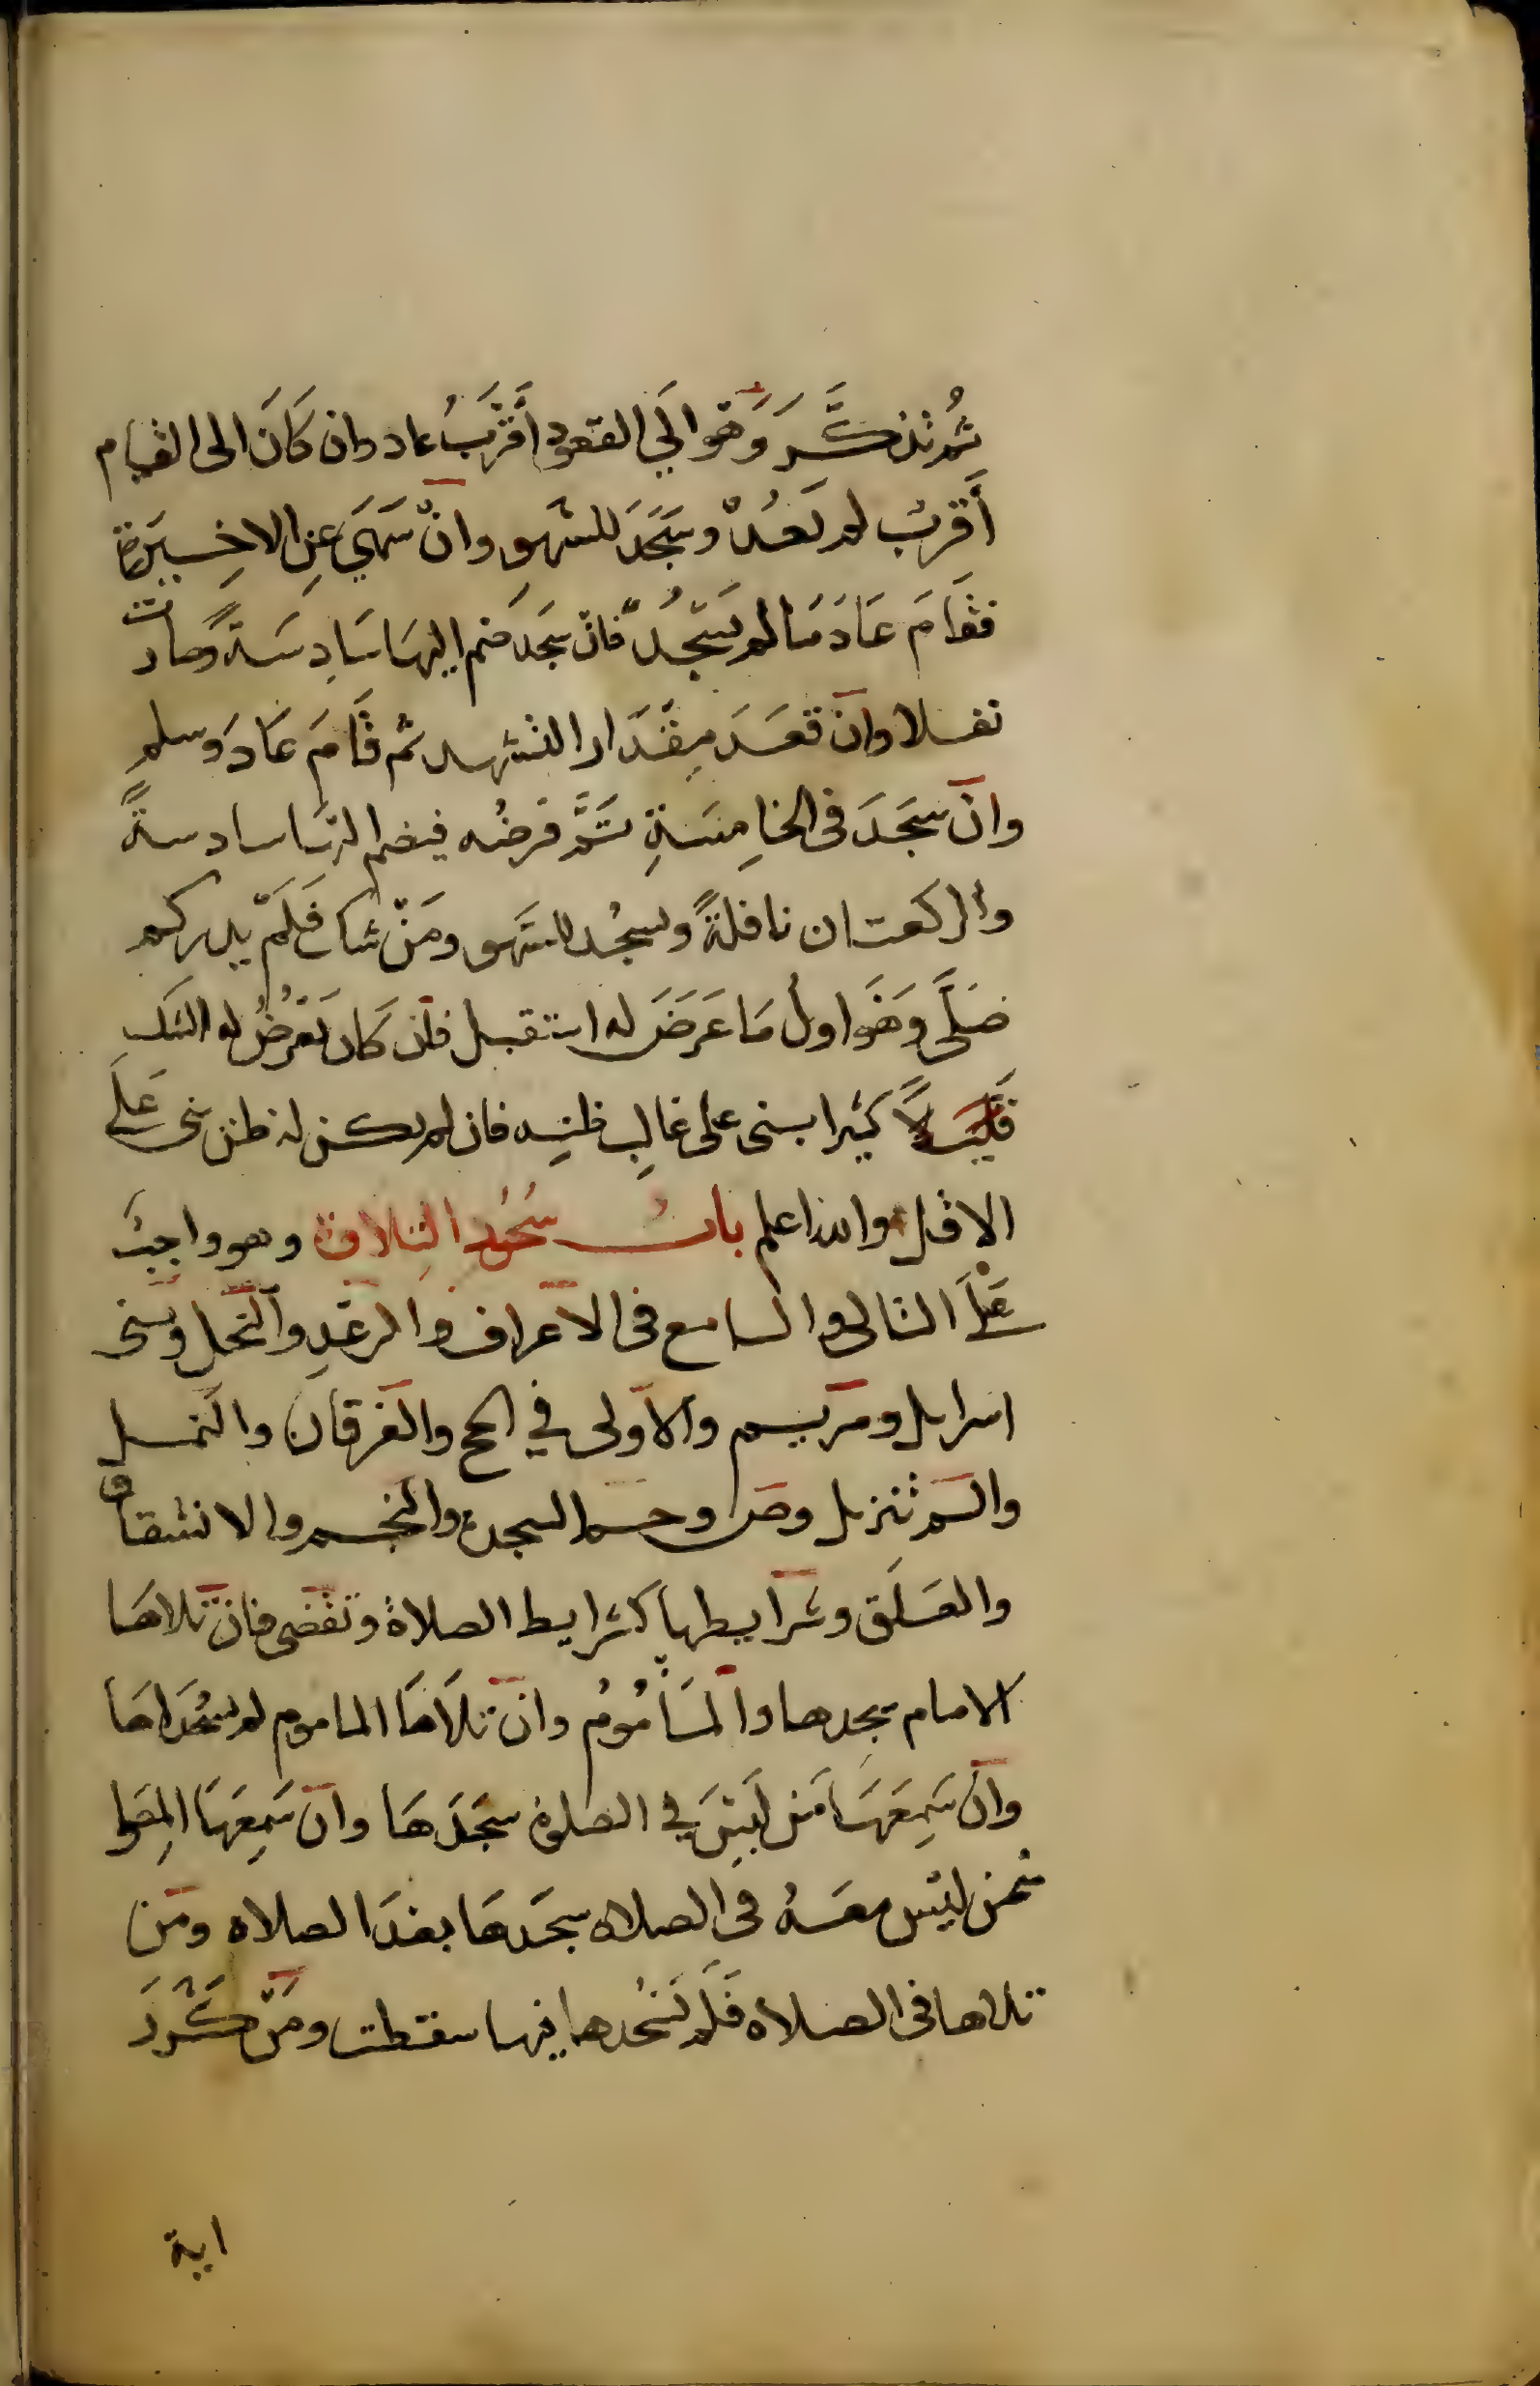 ثُم تذكَّر وَهو الَي القعود أقرَبُ عاد وان كَانَ الى القيام
أَقرب لم يَعُدْ وسَجَدَ للسَّهوِ وانْ سَهَي عَنِ الاخِيرَة
فقَامَ عَادَ مَا لم يَسْجُدْ فان سَجَد ضم اليهَا سَادِسَةً وصارت
نفلا وان قعَدَ مِقْدَار التشهد ثم قَامَ عَادَ وسلم
وان سَجَدَ فى الخامِسَةِ تَمَّ فرضُه فيضم اليهَا سادسةً
والركعتان نافلةً ويسجُد للسَّهو ومَنْ شك فَلَمْ يدركم
صَلَّى وَهَوَ اول مَا عَرَضَ له استقبل فان كَان يَعْرِضُ له الشك
قَلِيْلاً كثيرا بنى على غالِب ظنِه فان لم يكن له ظن بنى عَلَى
الاقل والله اعلم بابُ سُجُود التِلاوة وهو واجبُ
عَلَى التالى والسامع فى الاعراف والرعْدِ والنحل وبنى
اسرايل ومريم والاولى في الحج والفرقان والنمل
والم تنزيل وص وحم السجدة والنجم والانشقاق
والعَلَق وشرايطها كشرايط الصلاة وتقضى فان تلاهَا
الامام سجدها والمَأمُومُ وان تلَاهَا الماموم لم يسْجُدَاهَا
وان سَمِعَهَا مَن لَيْسَ في الصلوة سَجَدَهَا وان سَمِعَهَا المصَلى
ممن ليْس معَهُ فى الصلاه سجَدهَا بعْدَ الصلاه ومَن
تلاها فى الصلاه فَلَم يَسْجُدها فيها سقطت ومَنْ كَرَّرَ
اية